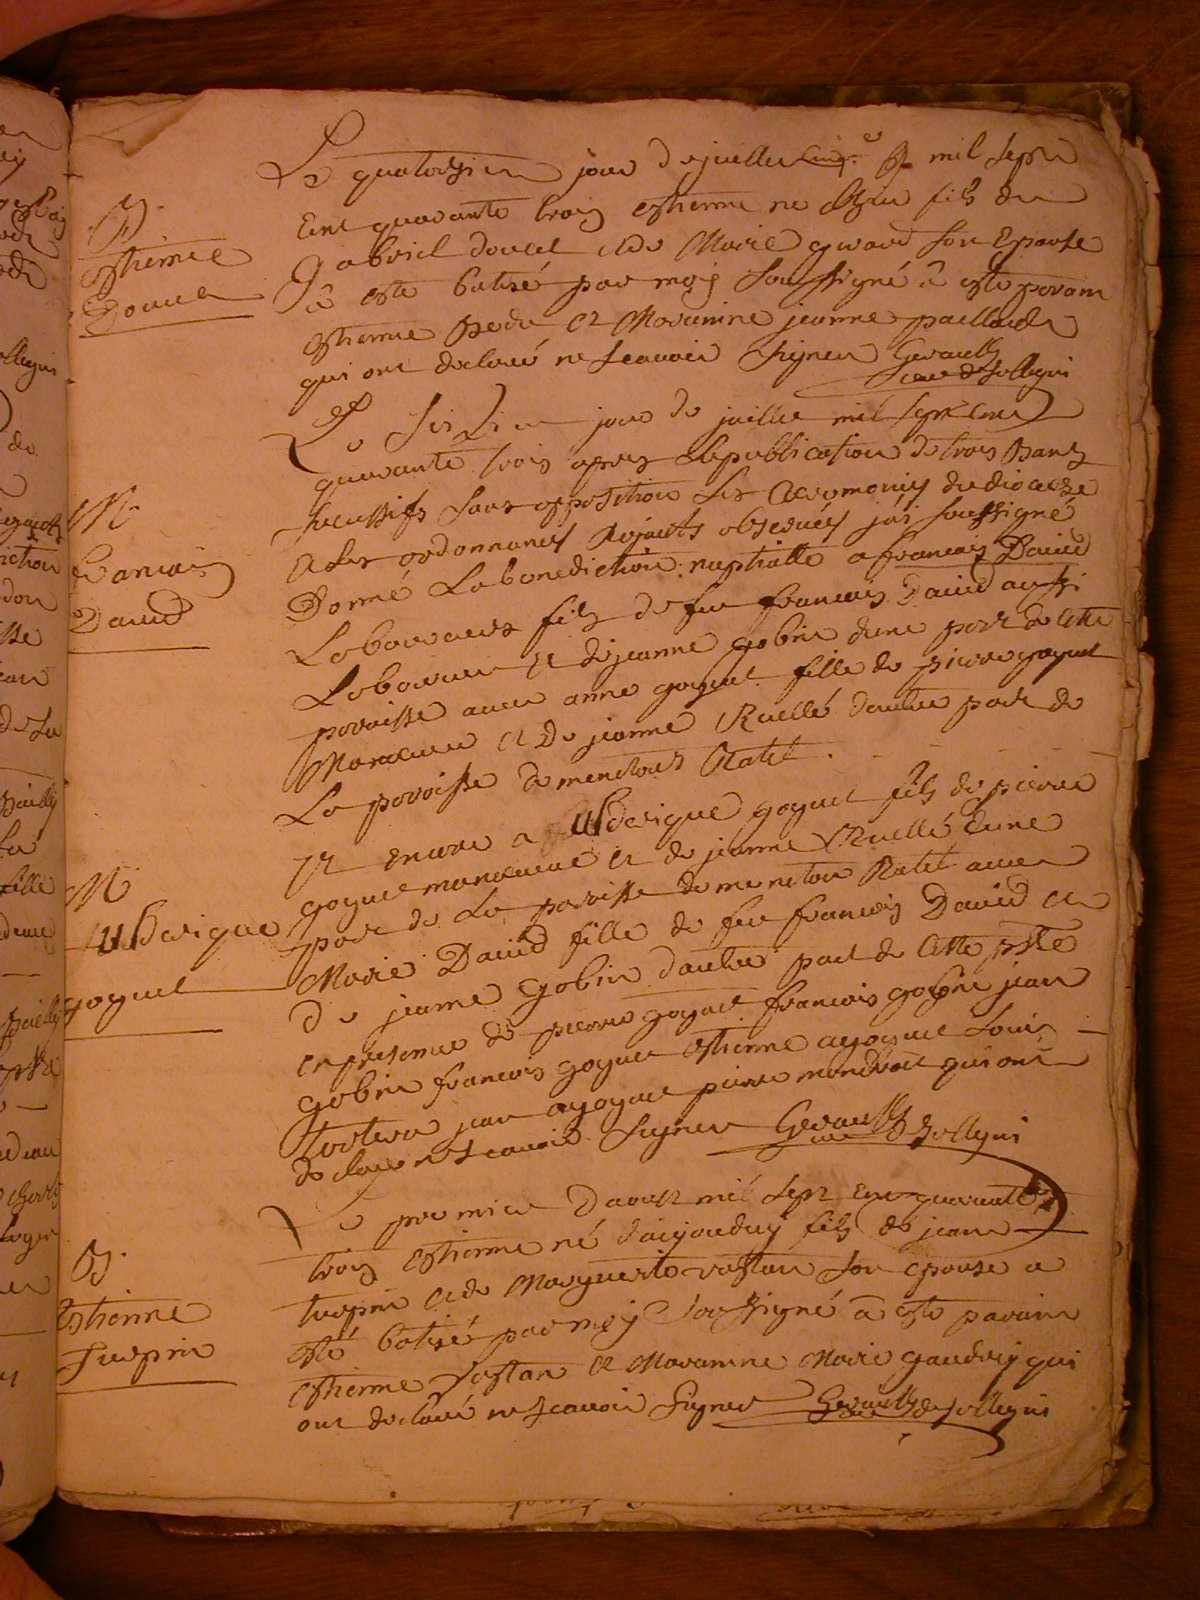 B.
Estienne
Doucet
Le quatorzien jour de juillet mil sept
Cent quarante trois estienne ne hyer fils de
Gabriel doucet et de Marie girard son Epouse
a esté batisé par moy soussigné a esté parain
estienne et Maraninne jeanne paillard
qui ont declaré ne scavoir signer Gerault
Curé de Sollegni
M.
francois
David
Le seizien jour de juillet mil sept cent
quarante trois apres la publication de trois bans
successifs sans opposition les ceremonies du dioceze
et les ordonnances royaux observées jai soussigné
Donné La benediction nuptialle a francois David
Laboureur fils de feu francois David aussi
Laboureur et de jeanne gobin dune part de cette
paroisse avec anne goguet fille de pierre goguet
Manoeuvre et de jeanne Ruellé dautre part de
La paroisse de menetous Ratel.
M
goguet
Et encore a goguet fils de pierre
goguet manoeuvre et de jeanne Ruellé dune
part de La paroisse de menetou Ratel avec
Marie David fille de feu francois David et
de jeanne gobin dautre part de cette psse
en presence de pierre goguet francois gobin jean
gobin francois goguet estienne agoguet Louis
jean agoguet pierre qui ont
declaré ne scavoir signer Gerault
Curé de Sollegni
B.
Estienne
Turpin
Le premier Daoust mil sept cent quarante
trois estienne né daujourduy fils de jean
turpin et de Marguerite rastan son epouse a
esté batisé par moy soussigné a esté parain
estienne rastan et Maraninne Marie gaudry qui
ont declaré ne scavoir signer Gerault de Sollegni